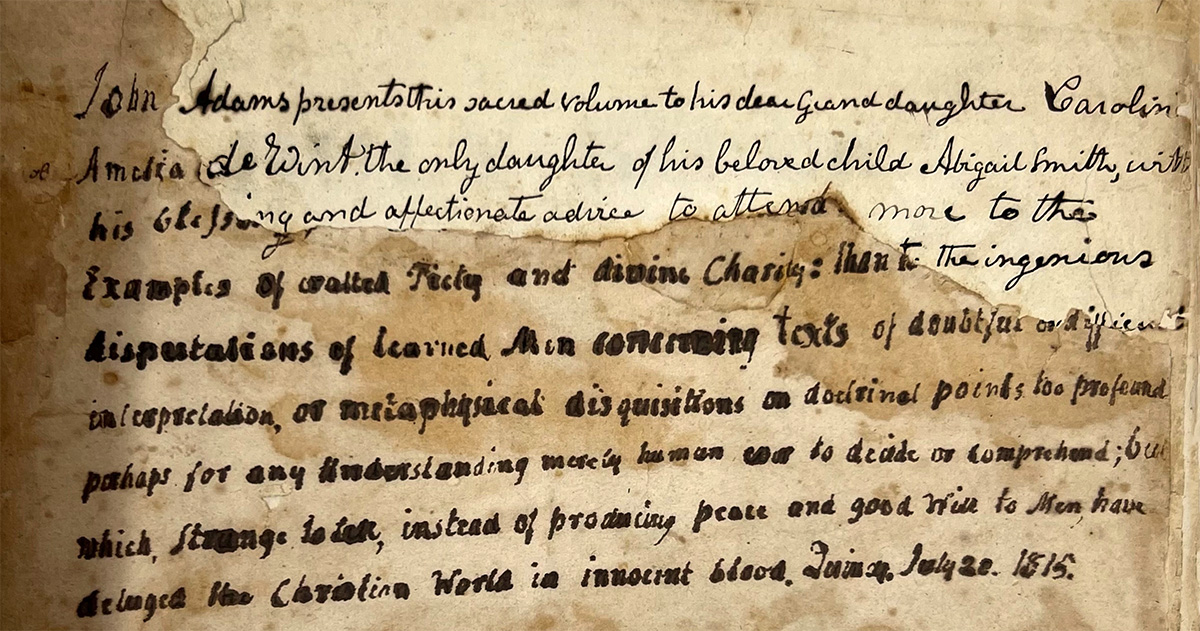 John Adams presents this sacred volume to his dear Granddaughter Carolin
Amelia de Wint. the only daughter of his beloved child Abigail Smith, with
his blessing and affectionate advice to attend more to the
Examples of exalted Piety and divine Charity: than to the ingenious
disputations of learned Men concerning texts of doubtful or difficult
interpretation, or metaphysical disquisitions on doctrinal points too profound
perhaps for any Understanding merely human ever to decide or comprehend; but
which, strange to tell, instead of producing peace and good Will to Men, have
deluged the Christian World in innocent blood. Quincy. July 20. 1815.